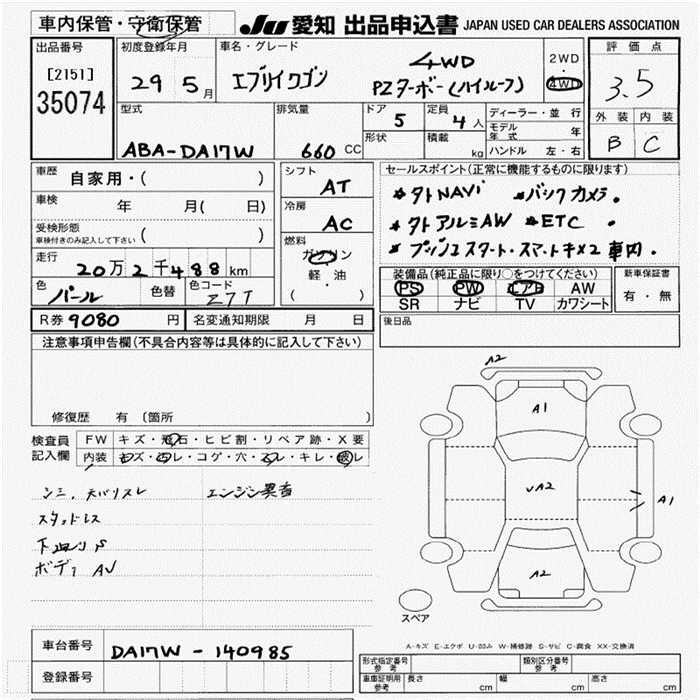 車内保管・守衛保管 JU 愛知 出品申込書 JAPAN USED CAR DEALERS ASSOCIATION
出品番号 初度登録年月 車名・グレード 評価点
[2151] 29 5月 エブリイワゴン 4WD 2WD・4WD 3.5
35074 PZターボー(ハイルーフ)
外装 内装
B C
型式 排気量 ドア 定員 ディーラー・並行
ABA-DA17W 660 CC 5 4人 モデル年式 年
形状 積載 kg ハンドル 左・右
車歴 自家用・( ) シフト AT セールスポイント(正常に機能するものに限ります)
車検 年 月( 日) 冷房 AC *タトNAVI *バックカメラ.
受検形態 ( ) *タトアルミAW *ETC .
車検付きのみ記入して下さい
燃料 ガソリン 軽・油 ( ) *プッシュスタート・スマートキー×2 車内.
走行 20万2千488km
装備品(純正品に限り○をつけてください) 新車保証書
色 パール 色替 色コード Z7T PS PW エアB AW 有・無
SR ナビ TV カワシート
R券 9080 円 名変通知期限 月 日 後日品
注意事項申告欄(不具合内容等は具体的に記入して下さい)
修復歴 有 〔箇所
検査員記入欄 FW キズ・飛石・ヒビ割・リペア跡・X要
内装 キズ・汚レ・コゲ・穴・スレ・キレ・破レ
シミ. エンジン異音
スタッドレス
下回りS
ボディAU
A2
A1
UA2
A1
A2
スペア
A-キズ E-エクボ U-凹み W-補修跡 S-サビ C-腐食 XX-交換済
車台番号 DA17W-140985
登録番号
形式指定番号 参考 類別区分番号 参考
車庫証明用 参考 長さ cm 幅 cm 高さ cm